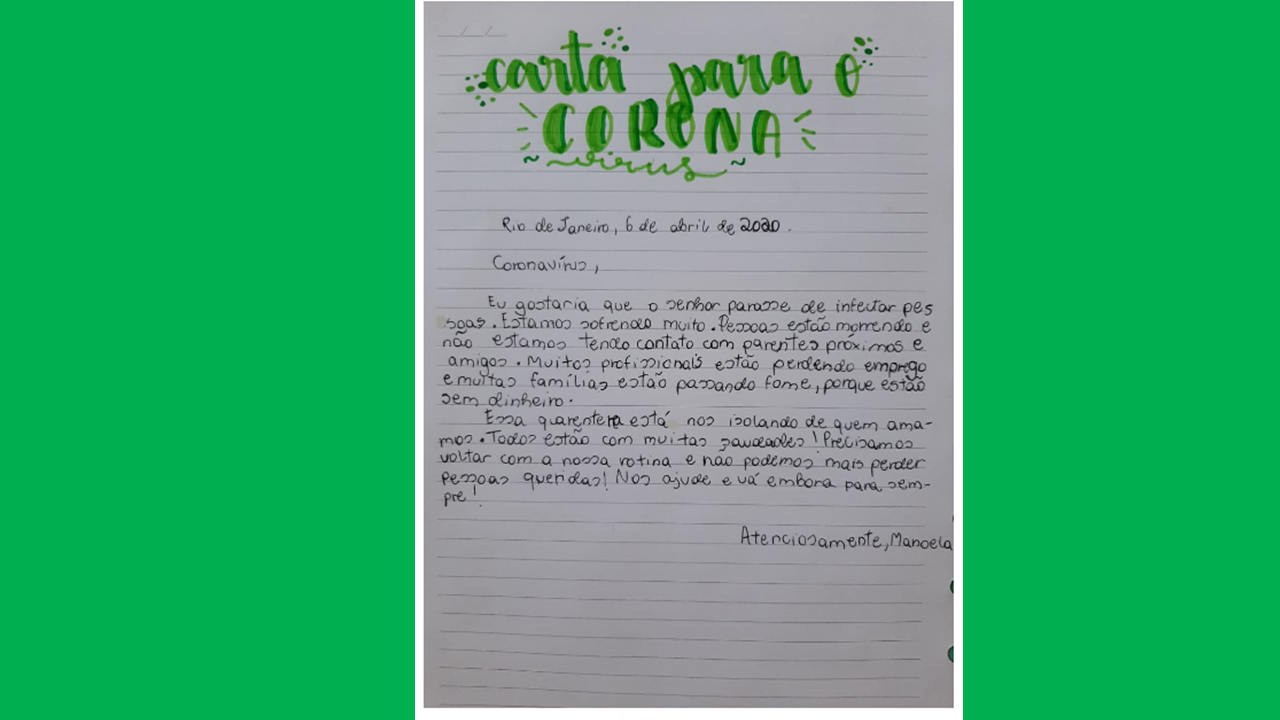 carta para o
CORONA
~virus~
Rio de Janeiro, 6 de abril de 2020.
Coronavírus,
Eu gostaria que o senhor parasse de infectar pes
soas. Estamos sofrendo muito. Pessoas estão morrendo e
não estamos tendo contato com parentes próximos e
amigos. Muitos profissionais estão perdendo emprego
e muitas famílias estão passando fome, porque estão
sem dinheiro.
Essa quarentena está nos isolando de quem ama-
mos. Todos estão com muitas saudades! Precisamos
voltar com a nossa rotina e não podemos mais perder
pessoas queridas! Nos ajude e vá embora para sem-
pre!
Atenciosamente, Manoela